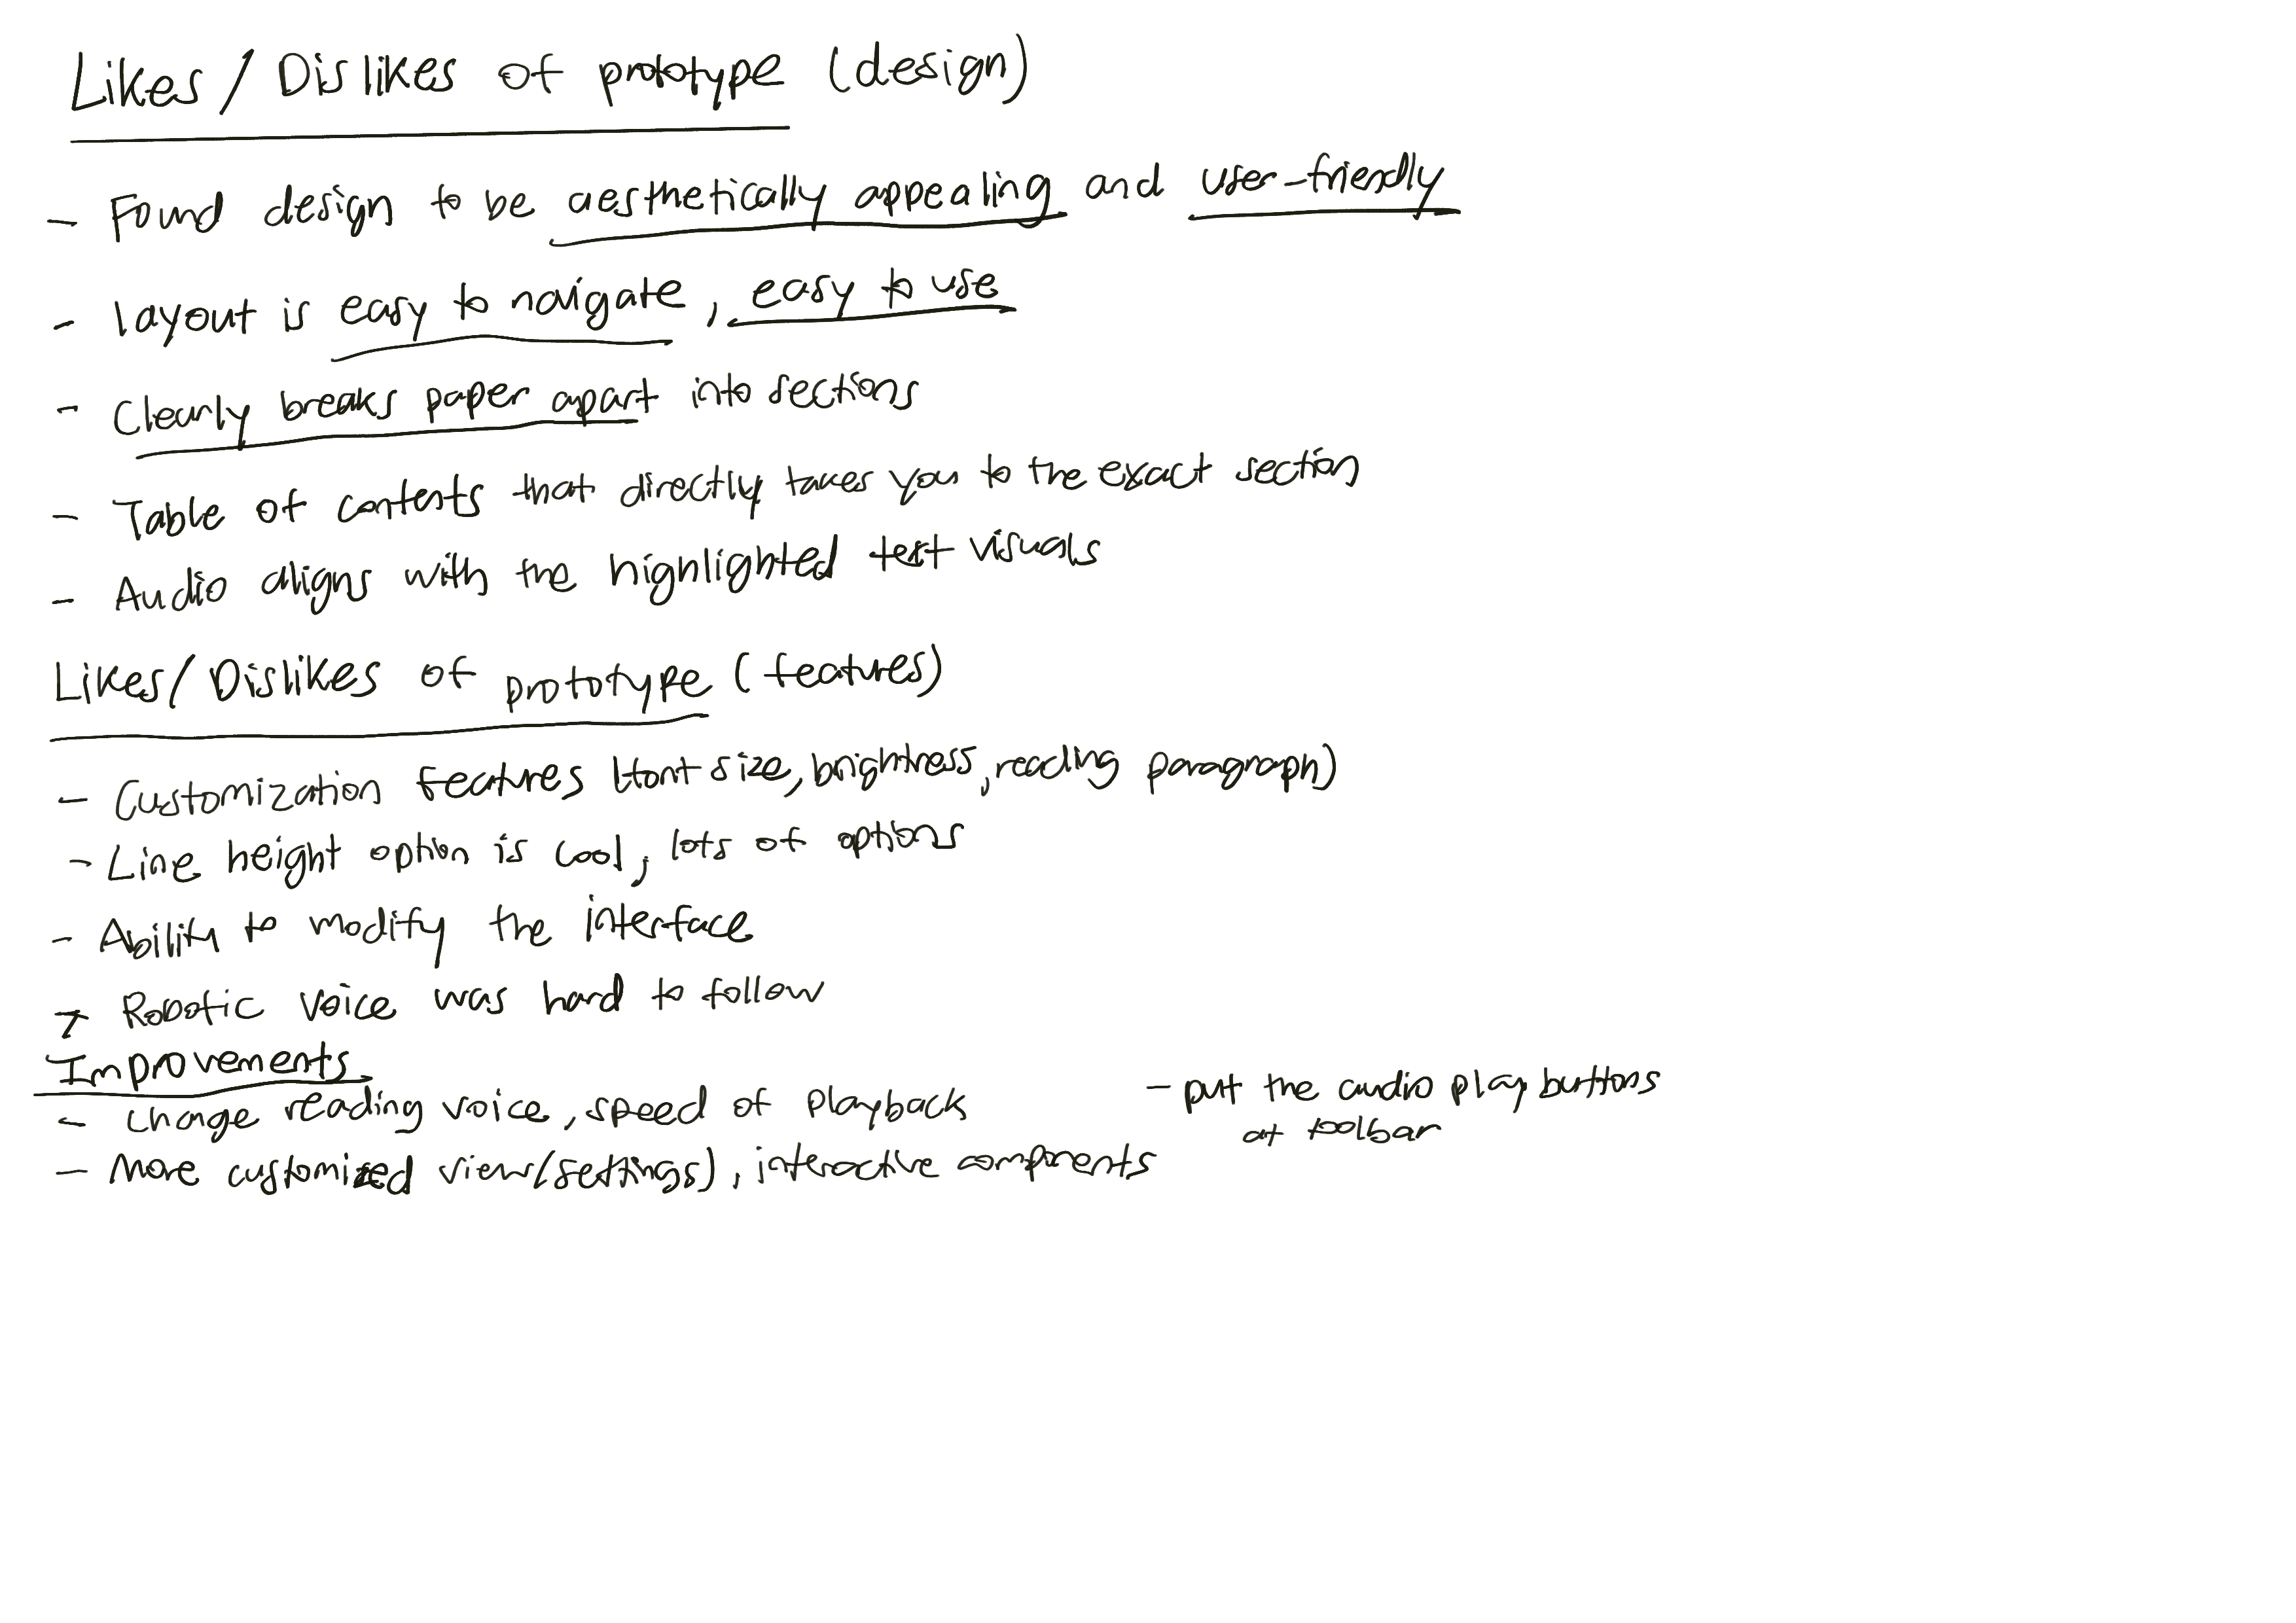 Likes / Dislikes of prototype (design)
- Found design to be aesthetically appealing and user-friendly
- Layout is easy to navigate, easy to use
- Clearly breaks paper apart into sections
- Table of contents that directly takes you to the exact section
- Audio aligns with the highlighted text visuals
Likes / Dislikes of prototype (features)
- Customization features (font size, brightness, reading paragraph)
- Line height option is cool, lots of options
- Ability to modify the interface
- Robotic voice was hard to follow
Improvements
- Change reading voice, speed of playback
- More customized view (settings), interactive components
- put the audio play buttons
at toolbar